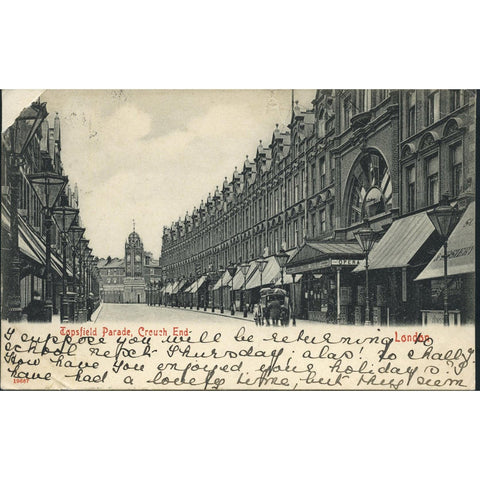 OPERA
Topsfield Parade, Crouch End-
London.
I suppose you will be returning to
school next Thursday, alas! to
How have you enjoyed your holidays? I
have had a lovely time, but they seem
19687